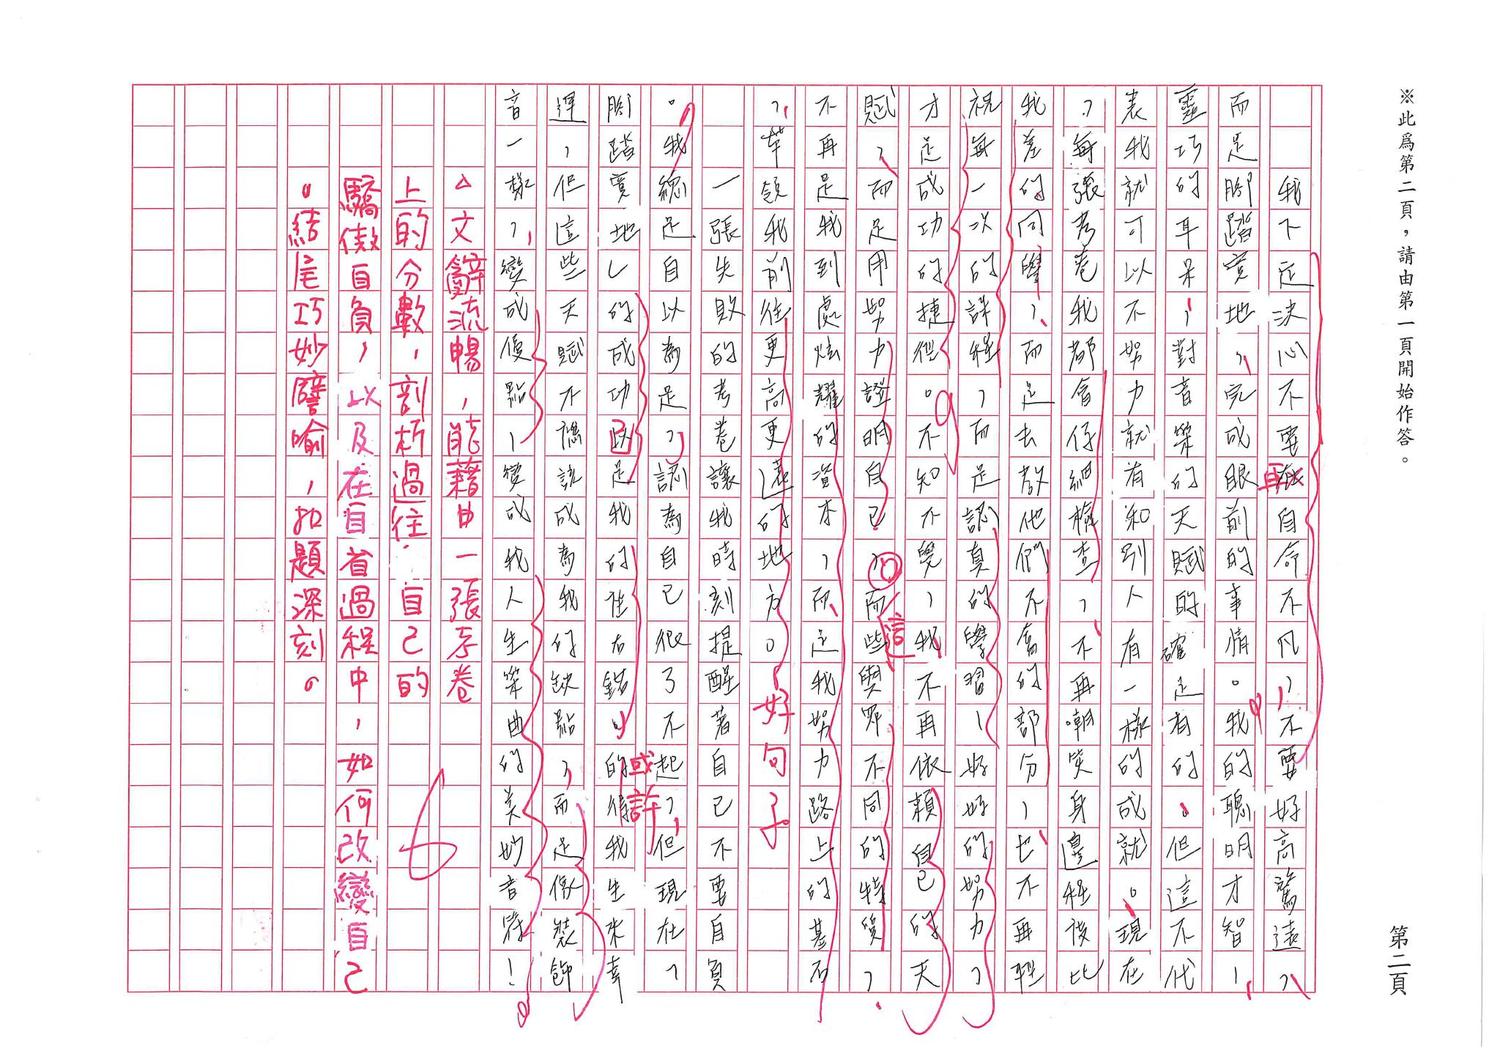 ※此爲第二頁，請由第一頁開始作答。
第二頁
我下定決心不要再自命不凡，不要好高騖遠，
而是腳踏實地，完成眼前的事情。我的聰明才智，
靈巧的耳朵，對音樂的天賦的確是有的，但這不代
表我就可以不努力就有和別人有一樣的成就。現在
，每張考卷我都會仔細檢查，不再嘲笑身邊程度比
我差的同學，而是去教他們不會的部分，也不再輕
視每一次的課程，而是認真的學習，好好的努力，
才是成功的捷徑。不知不覺，我不再依賴自己的天
賦，而是用努力證明自己，而這些與眾不同的特質，
不再是我到處炫耀的資本，而是我努力路上的基石
，率領我前往更高更遠的地方。
好句子
一張失敗的考卷讓我時刻提醒著自己不要自負
。我總是自以為是，認為自己很了不起，但現在，
腳踏實地」的成功 是我的座右銘，
或許
的 我生來幸
運，但這些天賦不該成為我的缺點，而是像裝飾
音一樣，變成優點，變成我人生樂曲的美妙音符！
△文辭流暢，能藉由一張考卷
上的分數，剖析過往自己的
驕傲自負，以及在自省過程中，如何改變自己
。結尾巧妙譬喻，扣題深刻。